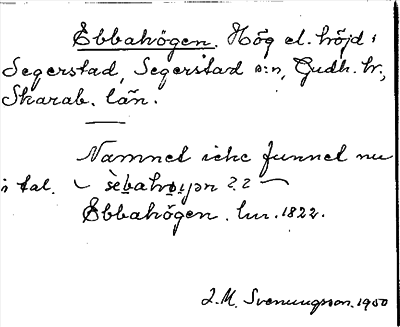 Ebbahögen. Hög el. höjd i
Segerstad, Segerstad s:n, Gudh. hr,
Skarab. län.
Namnet icke funnet nu
i tal. ~ sèbahøi̯ən ?? ~
Ebbahögen. lm. 1822.
J. M. Svenungsson. 1950